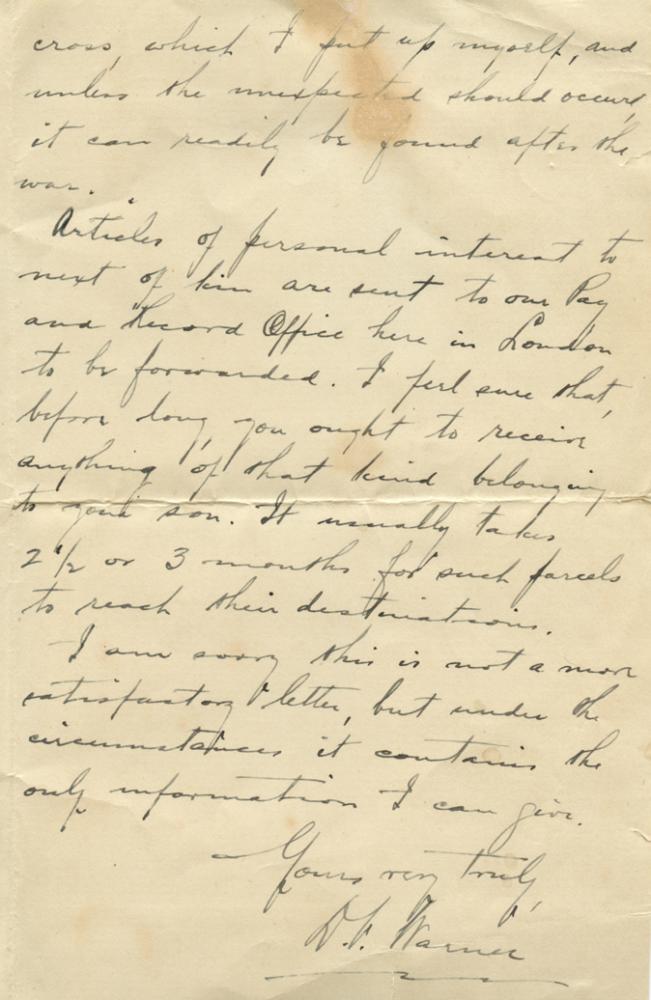 cross, which I put up myself, and
unless the unexpected should occur,
it can readily be found after the
war.
Articles of personal interest to
next of kin are sent to our Pay
and Record Office here in London
to be forwarded. I feel sure that,
before long, you ought to receive
anything of that kind belonging
to your son. It usually takes
2 1/2 or 3 months for such parcels
to reach their destinations.
I am sorry this is not a more
satisfactory letter, but under the
circumstances it contains the
only information I can give.
Yours very truly,
D.F. Warner